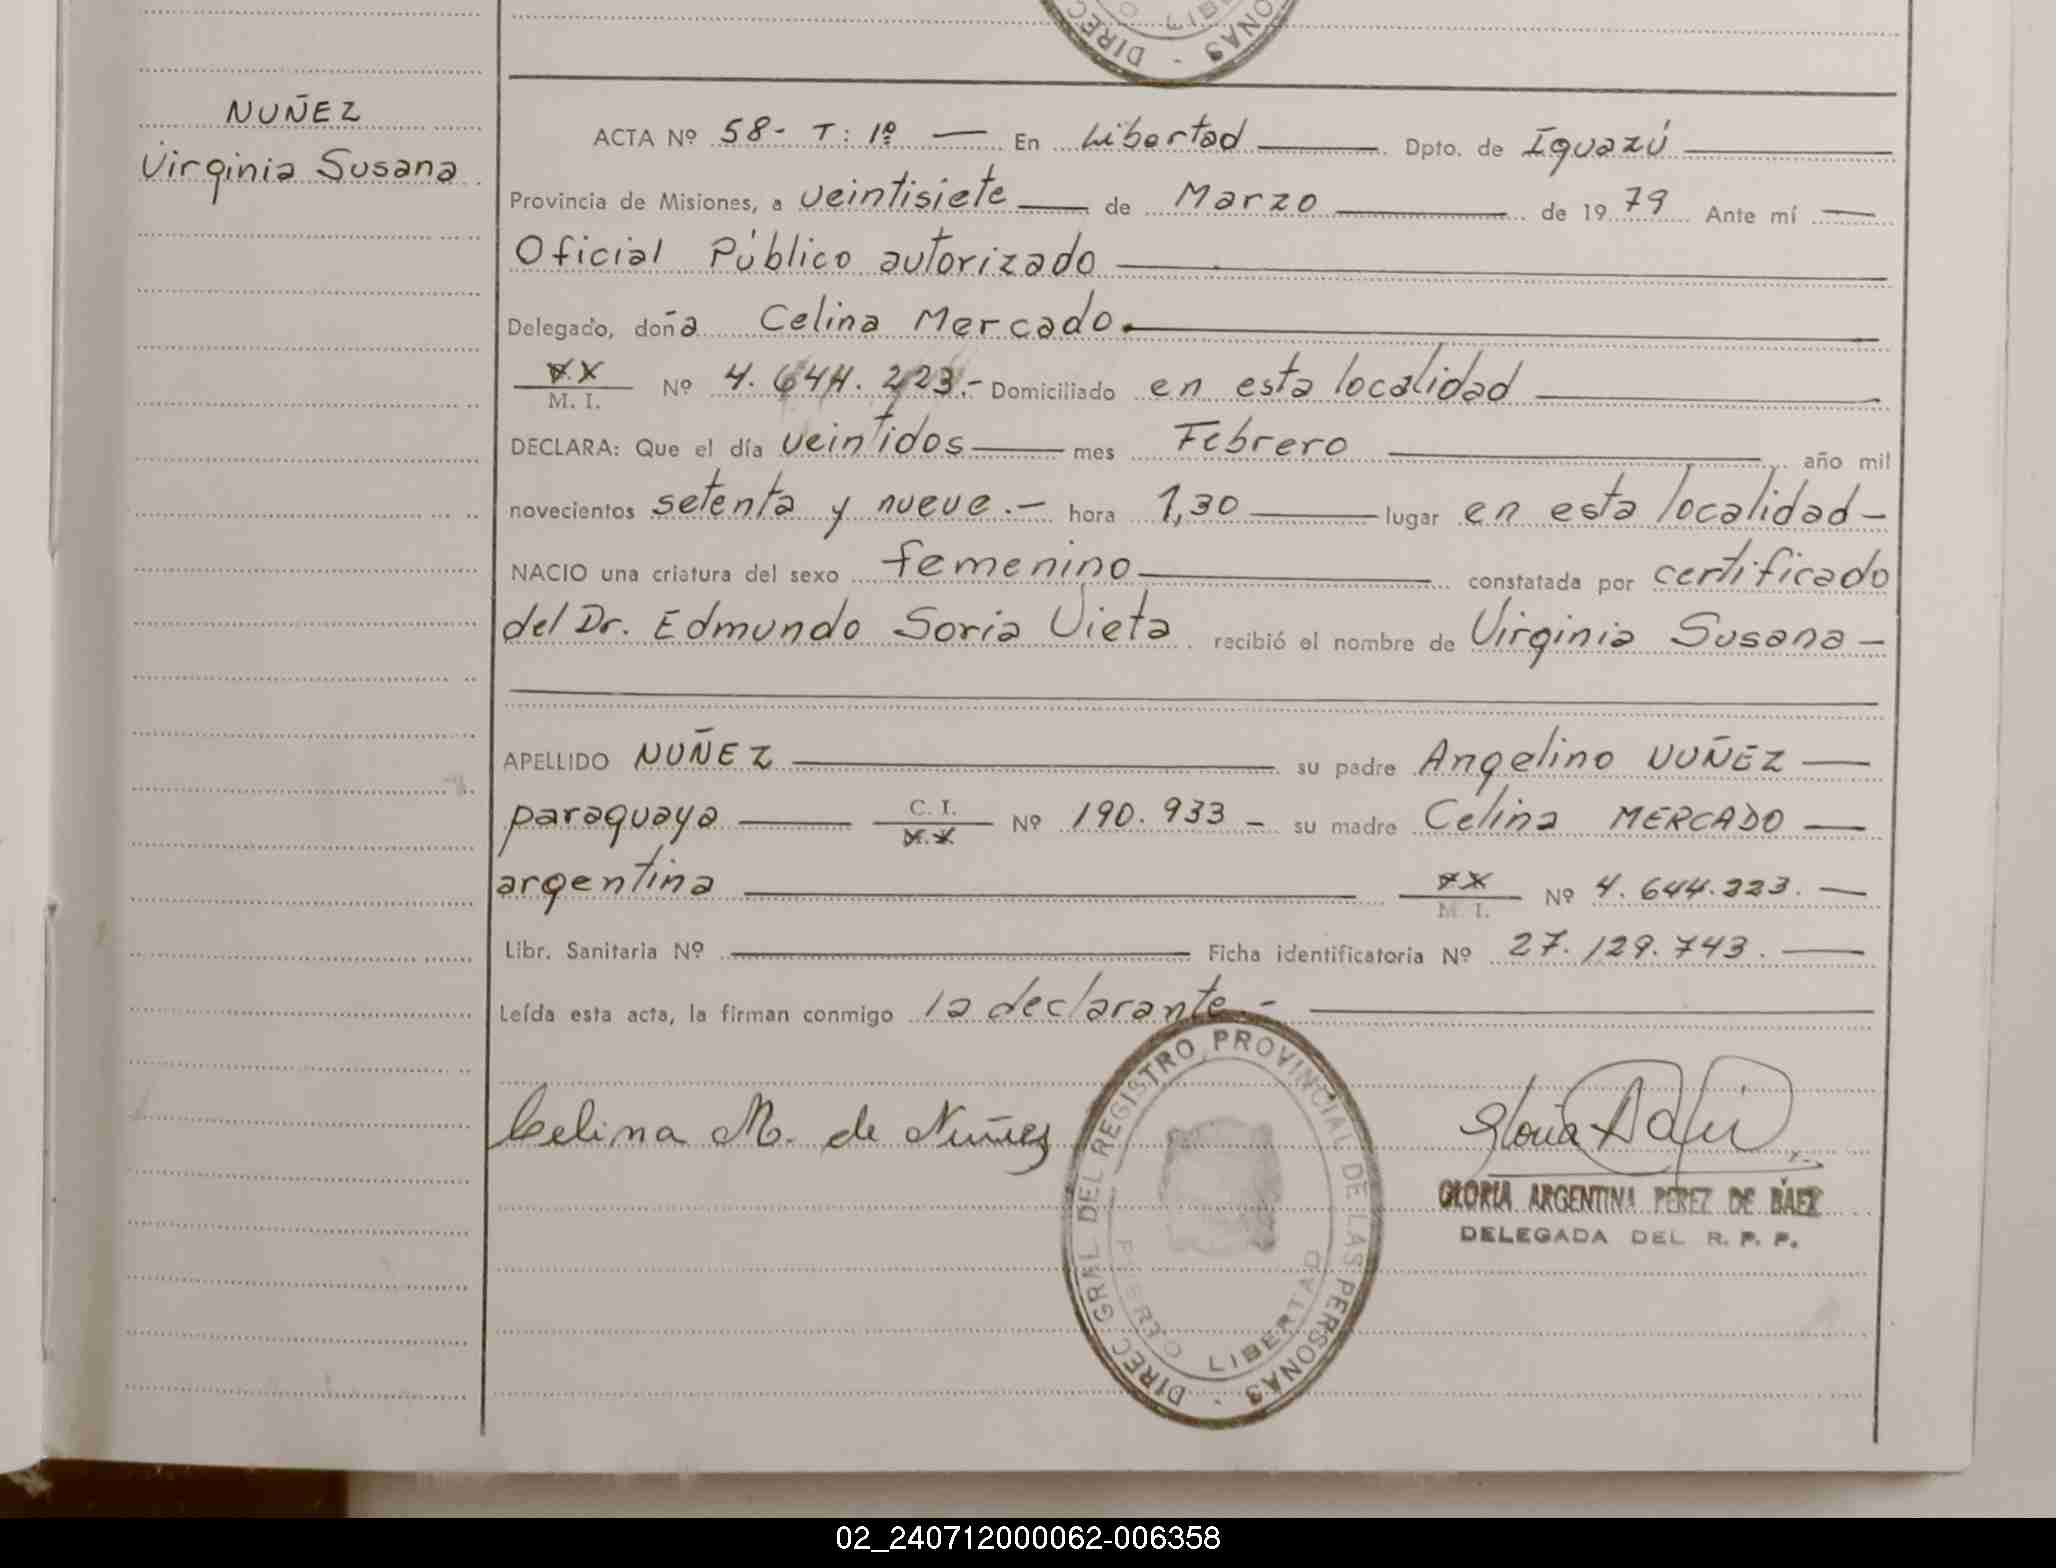 NUÑEZ
Virginia Susana
ACTA Nº 58- T: 1º En Libertad Dpto. de Iguazú
Provincia de Misiones, a veintisiete de Marzo de 1979 Ante mí
Oficial Público autorizado
Delegado, doña Celina Mercado.
M. I. Nº 4.644.223.- Domiciliado en esta localidad
DECLARA: Que el día veintidos mes Febrero año mil
novecientos setenta y nueve.- hora 1,30 lugar en esta localidad-
NACIO una criatura del sexo femenino constatada por certificado
del Dr. Edmundo Soria Vieta recibió el nombre de Virginia Susana-
APELLIDO NUÑEZ su padre Angelino NUÑEZ
paraguaya C. I. Nº 190.933- su madre Celina MERCADO
argentina M. I. Nº 4.644.223.
Libr. Sanitaria Nº Ficha identificatoria Nº 27.129.743.
Leída esta acta, la firman conmigo la declarante.-
Celina M. de Nuñez
DIREC GRAL DEL REGISTRO PROVINCIAL DE LAS PERSONAS
PUERTO LIBERTAD
GLORIA ARGENTINA PEREZ DE BÁEZ
DELEGADA DEL R. P. P.
02_240712000062-006358